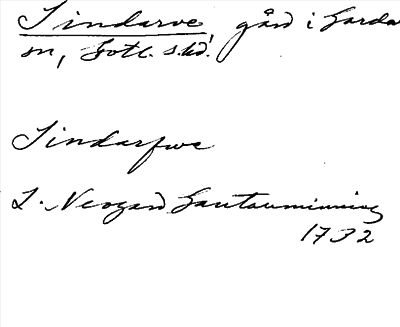 Sindarve gård i Garda
sn, Gotl. s.hd.
Sindarfwe
L. Neogard Gautauminning
1732